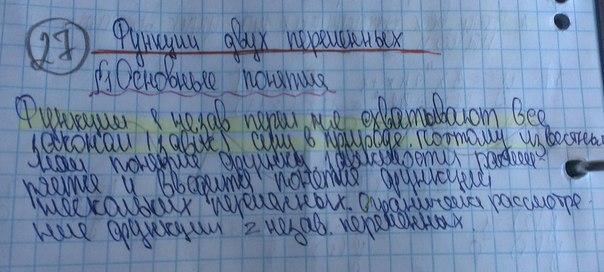 27
Функции двух переменных
§1 Основные понятия
Функции 1 незав перем не охватывают все
законы (завис) сущ в природе. Поэтому известные
нам понятия функц зависимости расши-
рить и ввести понятие функции
нескольких переменных. Ограничимся рассмотре-
ние функции 2 незав. переменных.